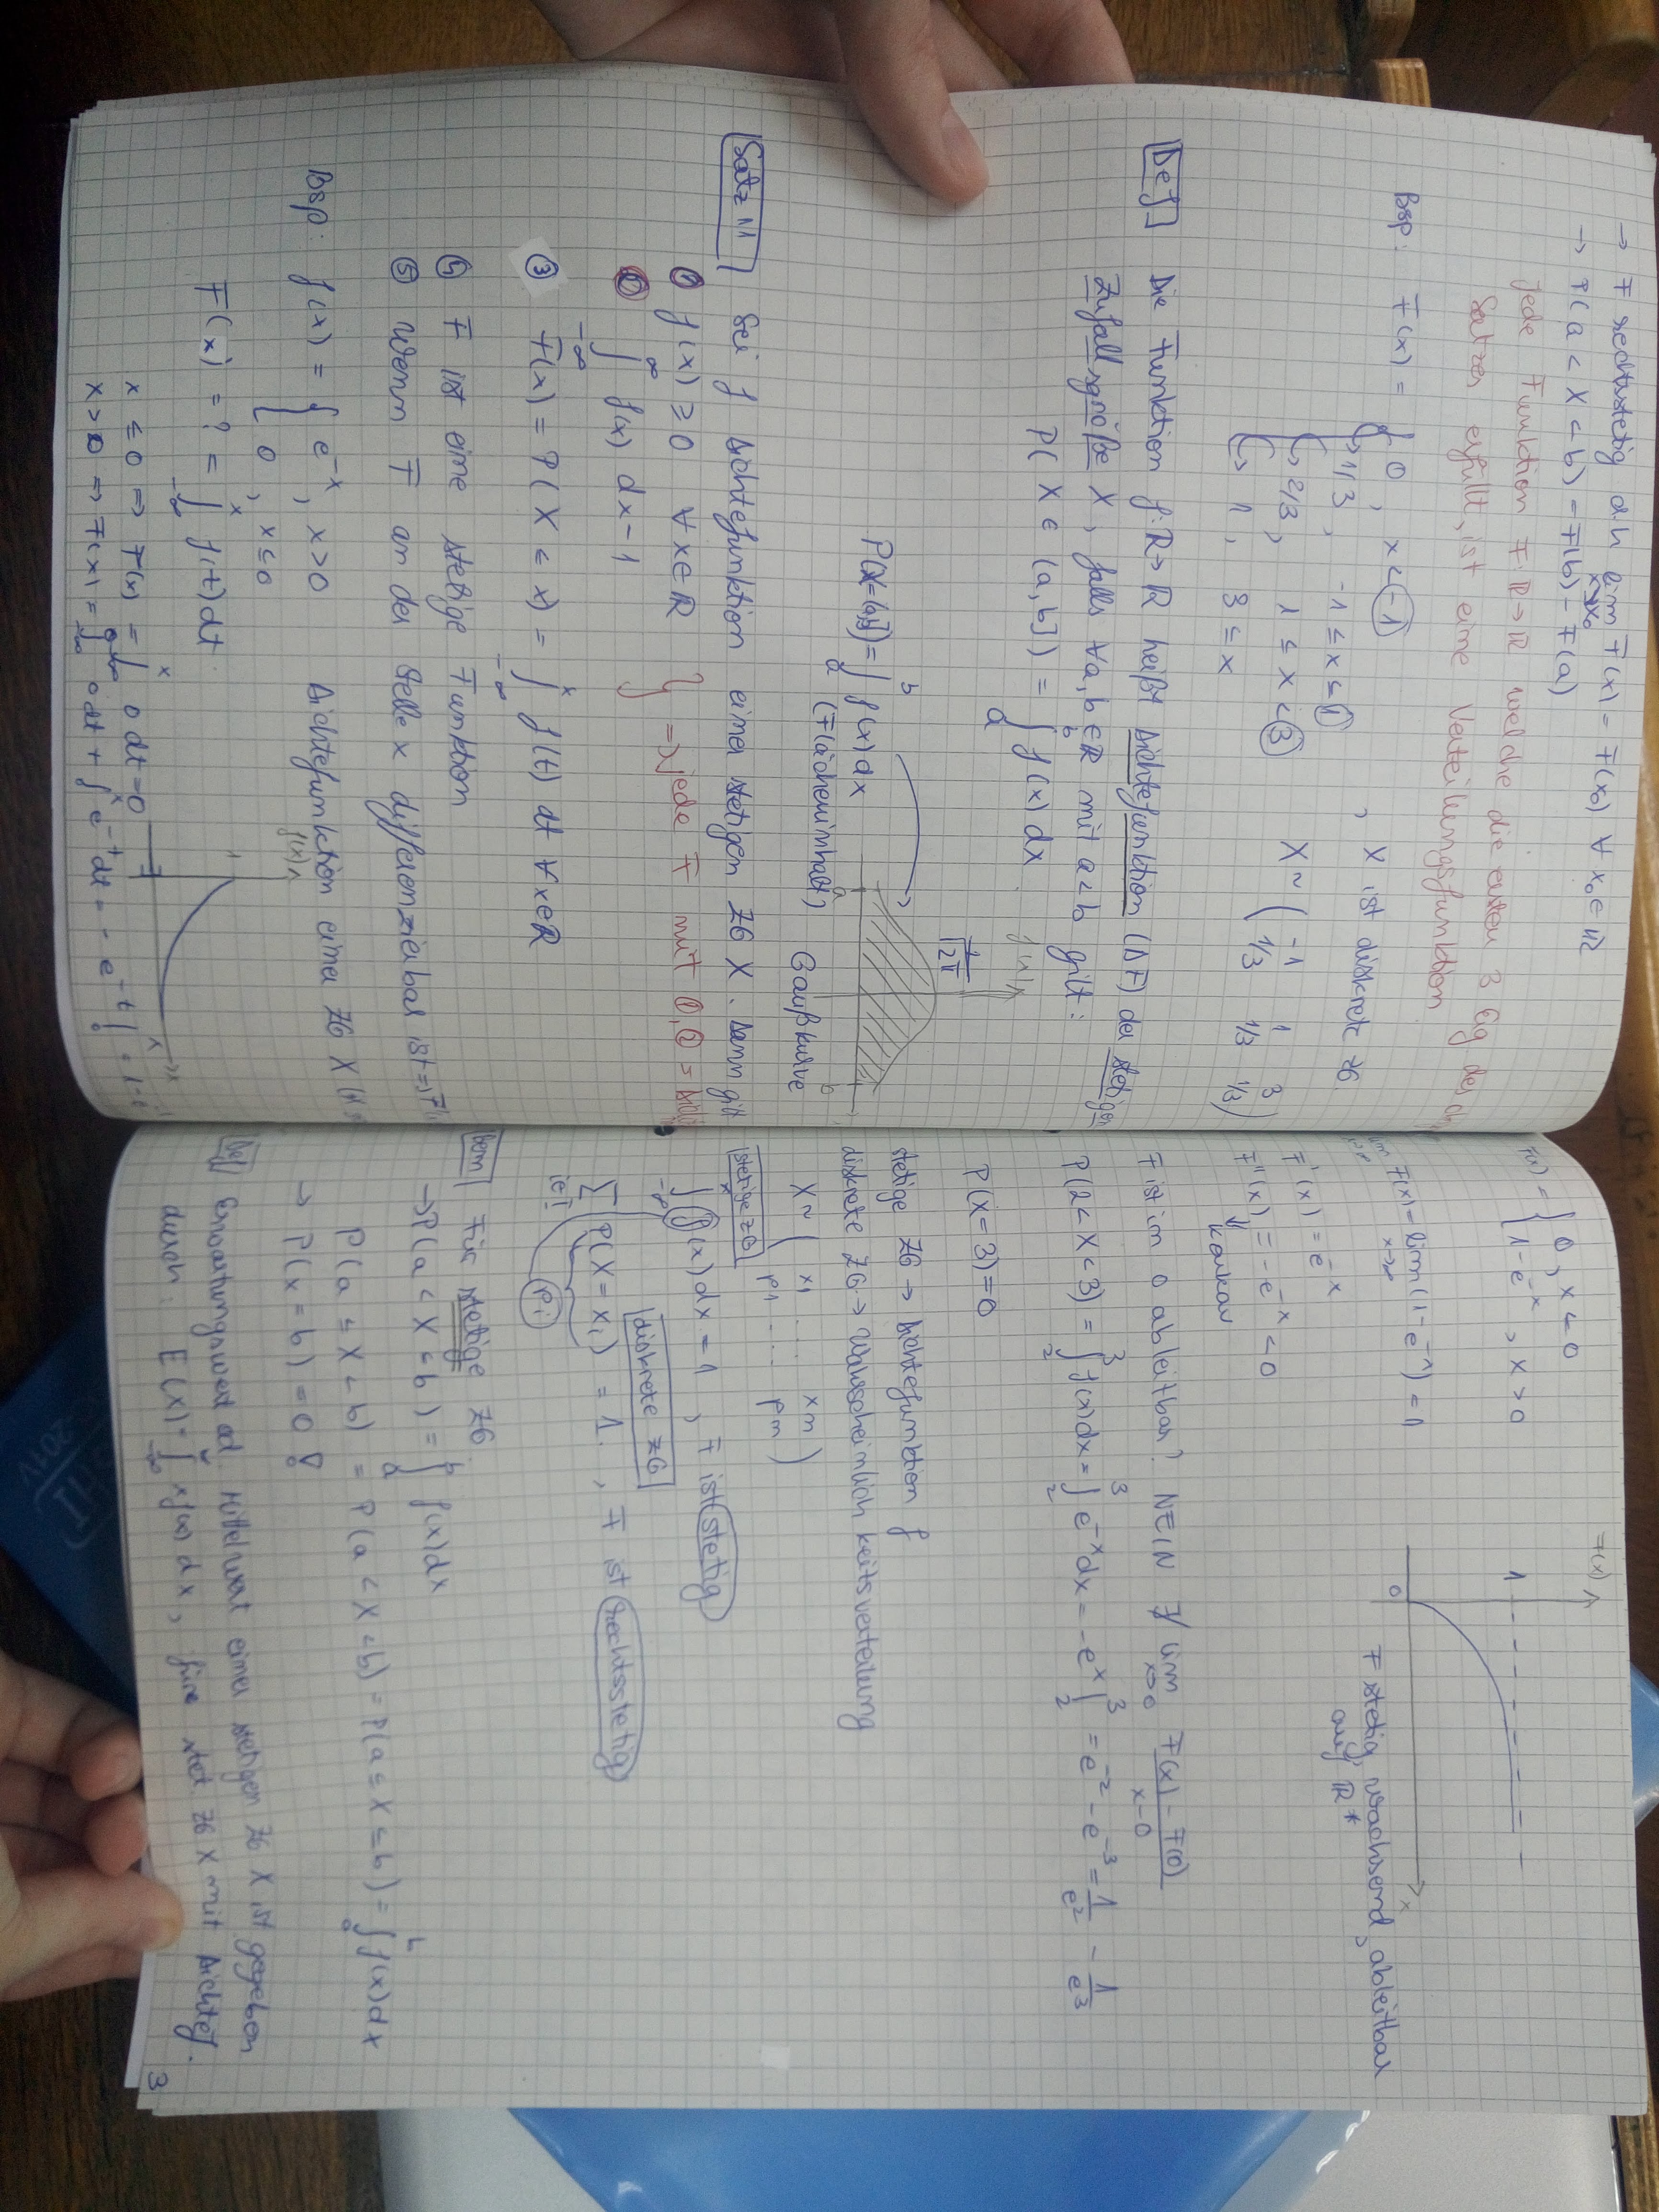 → F rechtsstetig d.h lim F(x) = F(x₀) ∀ x₀ ∈ ℝ
x↘x₀
→ P(a < X ≤ b) = F(b) - F(a)
Jede Funktion F: ℝ→ℝ welche die ersten 3 Eig des
Satzes erfüllt, ist eine Verteilungsfunktion.
Bsp: F(x) = { 0, x < -1
1/3, -1 ≤ x ≤ 1
2/3, 1 ≤ x < 3
1, 3 ≤ x
, X ist diskrete ZG.
X ~ ( -1 1 3
1/3 1/3 1/3 )
Def Die Funktion f: ℝ→ℝ heißt Dichtefunktion (DF) der stetigen
Zufallsgröße X, falls ∀a, b ∈ ℝ mit a < b gilt:
P( X ∈ (a, b]) = ∫ₐᵇ f(x) dx
f(x)
1/√2π
P(X=(a,b]) = ∫ₐᵇ f(x) dx
(Flächeninhalt)
a b
Gaußkurve
Satz 1.1 Sei f Dichtefunktion einer stetigen ZG X. Dann gilt
① f(x) ≥ 0 ∀x∈ℝ } => jede F mit ①, ② =
② ∫_{-∞}^{∞} f(x) dx = 1
③ F(x) = P( X ≤ x) = ∫_{-∞}^{x} f(t) dt ∀x∈ℝ
④ F ist eine stetige Funktion
⑤ Wenn F an der Stelle x differenzierbar ist =>
Bsp: f(x) = { e^{-x}, x>0 Dichtefunktion einer ZG X
0, x≤0
f(x)
1
x
F(x) = ? = ∫_{-∞}^{x} f(t) dt
x ≤ 0 => F(x) = ∫_{-∞}^{x} 0 dt = 0
x > 0 => F(x) = ∫_{-∞}^{0} 0 dt + ∫_{0}^{x} e^{-t} dt = - e^{-t} |
F(x) = { 0, x < 0
1-e^{-x}, x > 0
F(x)
1
0
x
F stetig, wachsend, ableitbar
auf ℝ*
lim F(x) = lim (1-e^{-x}) = 1
x→∞ x→∞
F'(x) = e^{-x}
F''(x) = -e^{-x} < 0
↓
konkav
F ist im 0 ableitbar? NEIN ∄ lim_{x→0} (F(x) - F(0))/(x-0)
P(2 < X < 3) = ∫₂³ f(x) dx = ∫₂³ e^{-x} dx = -e^{x} |₂³ = e^{-2} - e^{-3} = 1/e² - 1/e³
P(X=3)=0
stetige ZG → Dichtefunktion f
diskrete ZG → Wahrscheinlichkeitsverteilung
X ~ ( x1 .... xn
p1 .... pn )
stetige ZG
∫_{-∞}^{x} f(x) dx = 1, F ist stetig
diskrete ZG
Σ_{i∈I} P(X = xi) = 1., F ist rechtsstetig
pi
Bem Für stetige ZG.
→ P(a < X ≤ b) = ∫ₐᵇ f(x) dx
P(a ≤ X < b) = P(a < X < b) = P(a ≤ X ≤ b) = ∫ₐᵇ f(x) dx
→ P(x = b) = 0 !
Def Erwartungswert od. Mittelwert einer stetigen ZG X ist gegeben
durch: E(X) = ∫_{-∞}^{∞} x f(x) dx, für stet. ZG X mit Dichtef.
3